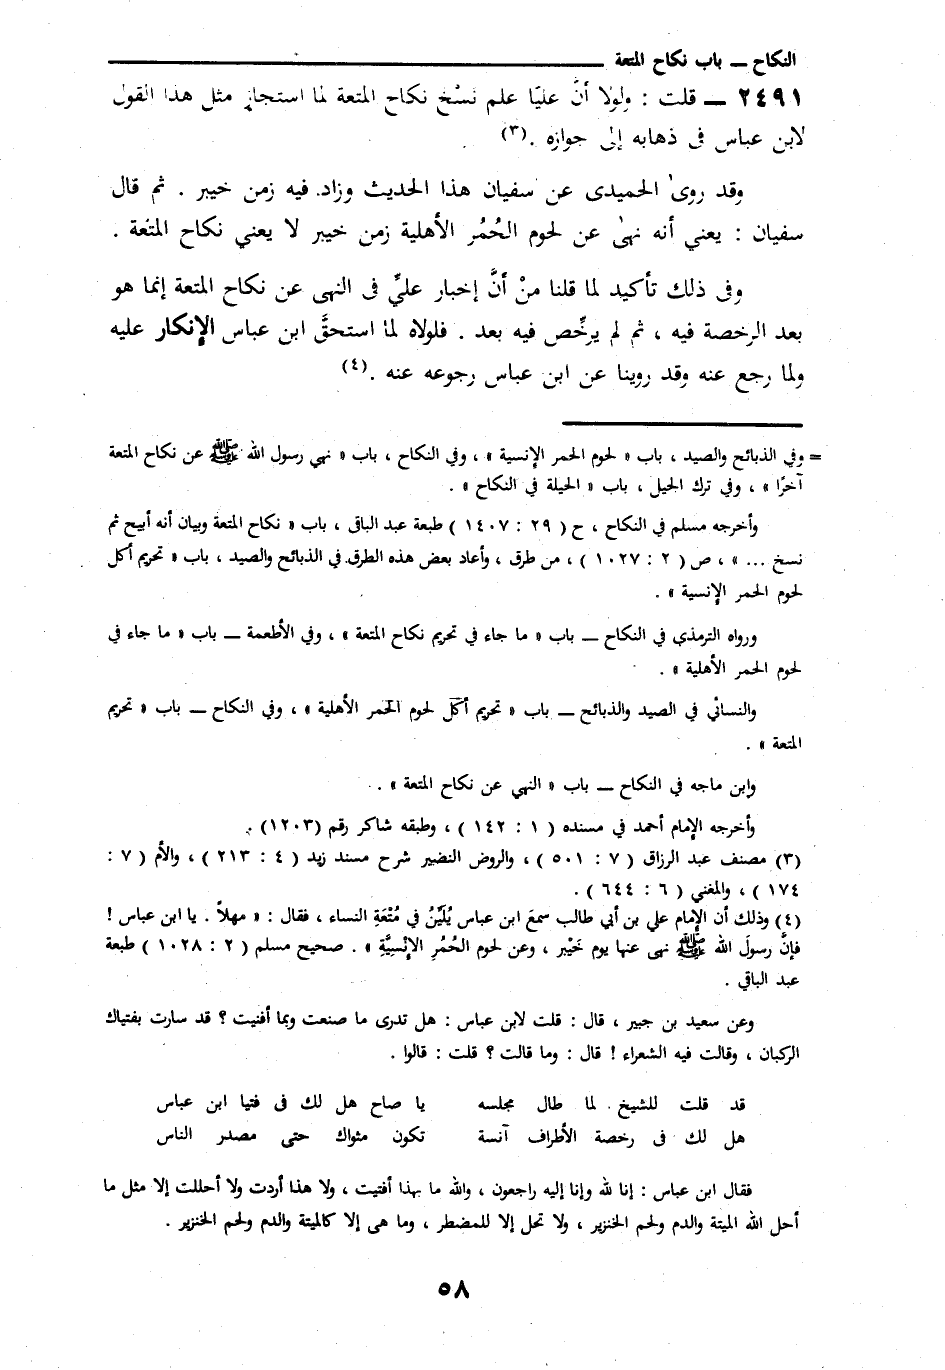 النكاح ـــ باب نكاح المتعة
٢٤٩١ ـــ قلت : ولولا أنَّ عليًا علم نسْخ نكاح المتعة لما استجاز مثل هذا القول
لابن عباس فى ذهابه إلى جوازه .(٣)
وقد روى الحميدى عن سفيان هذا الحديث وزاد فيه زمن خيبر . ثم قال
سفيان : يعني أنه نهىٰ عن لحوم الحُمُر الأهلية زمن خيبر لا يعني نكاح المتعة .
وفى ذلك تأكيد لما قلنا منْ أنَّ إخبار عليٍّ فى النهى عن نكاح المتعة إنما هو
بعد الرخصة فيه ، ثم لم يرخِّص فيه بعد . فلولاه لما استحقَّ ابن عباس الإنكار عليه
ولما رجع عنه وقد روينا عن ابن عباس رجوعه عنه .(٤)
= وفي الذبائح والصيد ، باب « لحوم الحمر الإنسية » ، وفي النكاح ، باب « نهي رسول الله ﷺ عن نكاح المتعة
آخرًا » ، وفي ترك الحيل ، باب « الحيلة في النكاح » .
وأخرجه مسلم في النكاح ، ح ( ٢٩ : ١٤٠٧ ) طبعة عبد الباقى ، باب « نكاح المتعة وبيان أنه أبيح ثم
نسخ ... » ، ص ( ٢ : ١٠٢٧ ) ، من طرق ، وأعاد بعض هذه الطرق في الذبائح والصيد ، باب « تحريم أكل
لحوم الحمر الإنسية » .
ورواه الترمذى في النكاح ـــ باب « ما جاء في تحريم نكاح المتعة » ، وفي الأطعمة ـــ باب « ما جاء في
لحوم الحمر الأهلية » .
والنسائي في الصيد والذبائح ـــ باب « تحريم أكل لحوم الحمر الأهلية » ، وفي النكاح ـــ باب « تحريم
المتعة » .
وابن ماجه في النكاح ـــ باب « النهي عن نكاح المتعة » .
وأخرجه الإمام أحمد في مسنده ( ١ : ١٤٢ ) ، وطبقه شاكر رقم (١٢٠٣) .
(٣) مصنف عبد الرزاق ( ٧ : ٥٠١ ) ، والروض النضير شرح مسند زيد ( ٤ : ٢١٣ ) ، والأم ( ٧ :
١٧٤ ) ، والمغني ( ٦ : ٦٤٤ ) .
(٤) وذلك أن الإمام علي بن أبي طالب سمعَ ابن عباس يُلَيِّنُ في مُتْعَةِ النساء ، فقال : « مهلاً . يا ابن عباس !
فإنَّ رسولَ الله ﷺ نهى عنها يوم خَيْبر ، وعن لحوم الحُمُرِ الإنْسِيَّةِ » . صحيح مسلم ( ٢ : ١٠٢٨ ) طبعة
عبد الباقي .
وعن سعيد بن جبير ، قال : قلت لابن عباس : هل تدرى ما صنعت وبما أفنيت ؟ قد سارت بفتياك
الركبان ، وقالت فيه الشعراء ! قال : وما قالت ؟ قلت : قالوا .
قد قلت للشيخ لما طال مجلسه    يا صاح هل لك فى فتيا ابن عباس
هل لك فى رخصة الأطراف آنسة    تكون مثواك حتى مصدر الناس
فقال ابن عباس : إنا لله وإنا إليه راجعون ، والله ما بهذا أفتيت ، ولا هذا أردت ولا أحللت إلا مثل ما
أحل الله الميتة والدم ولحم الخنزير ، ولا تحل إلا للمضطر ، وما هى إلا كالميتة والدم ولحم الخنزير .
٥٨